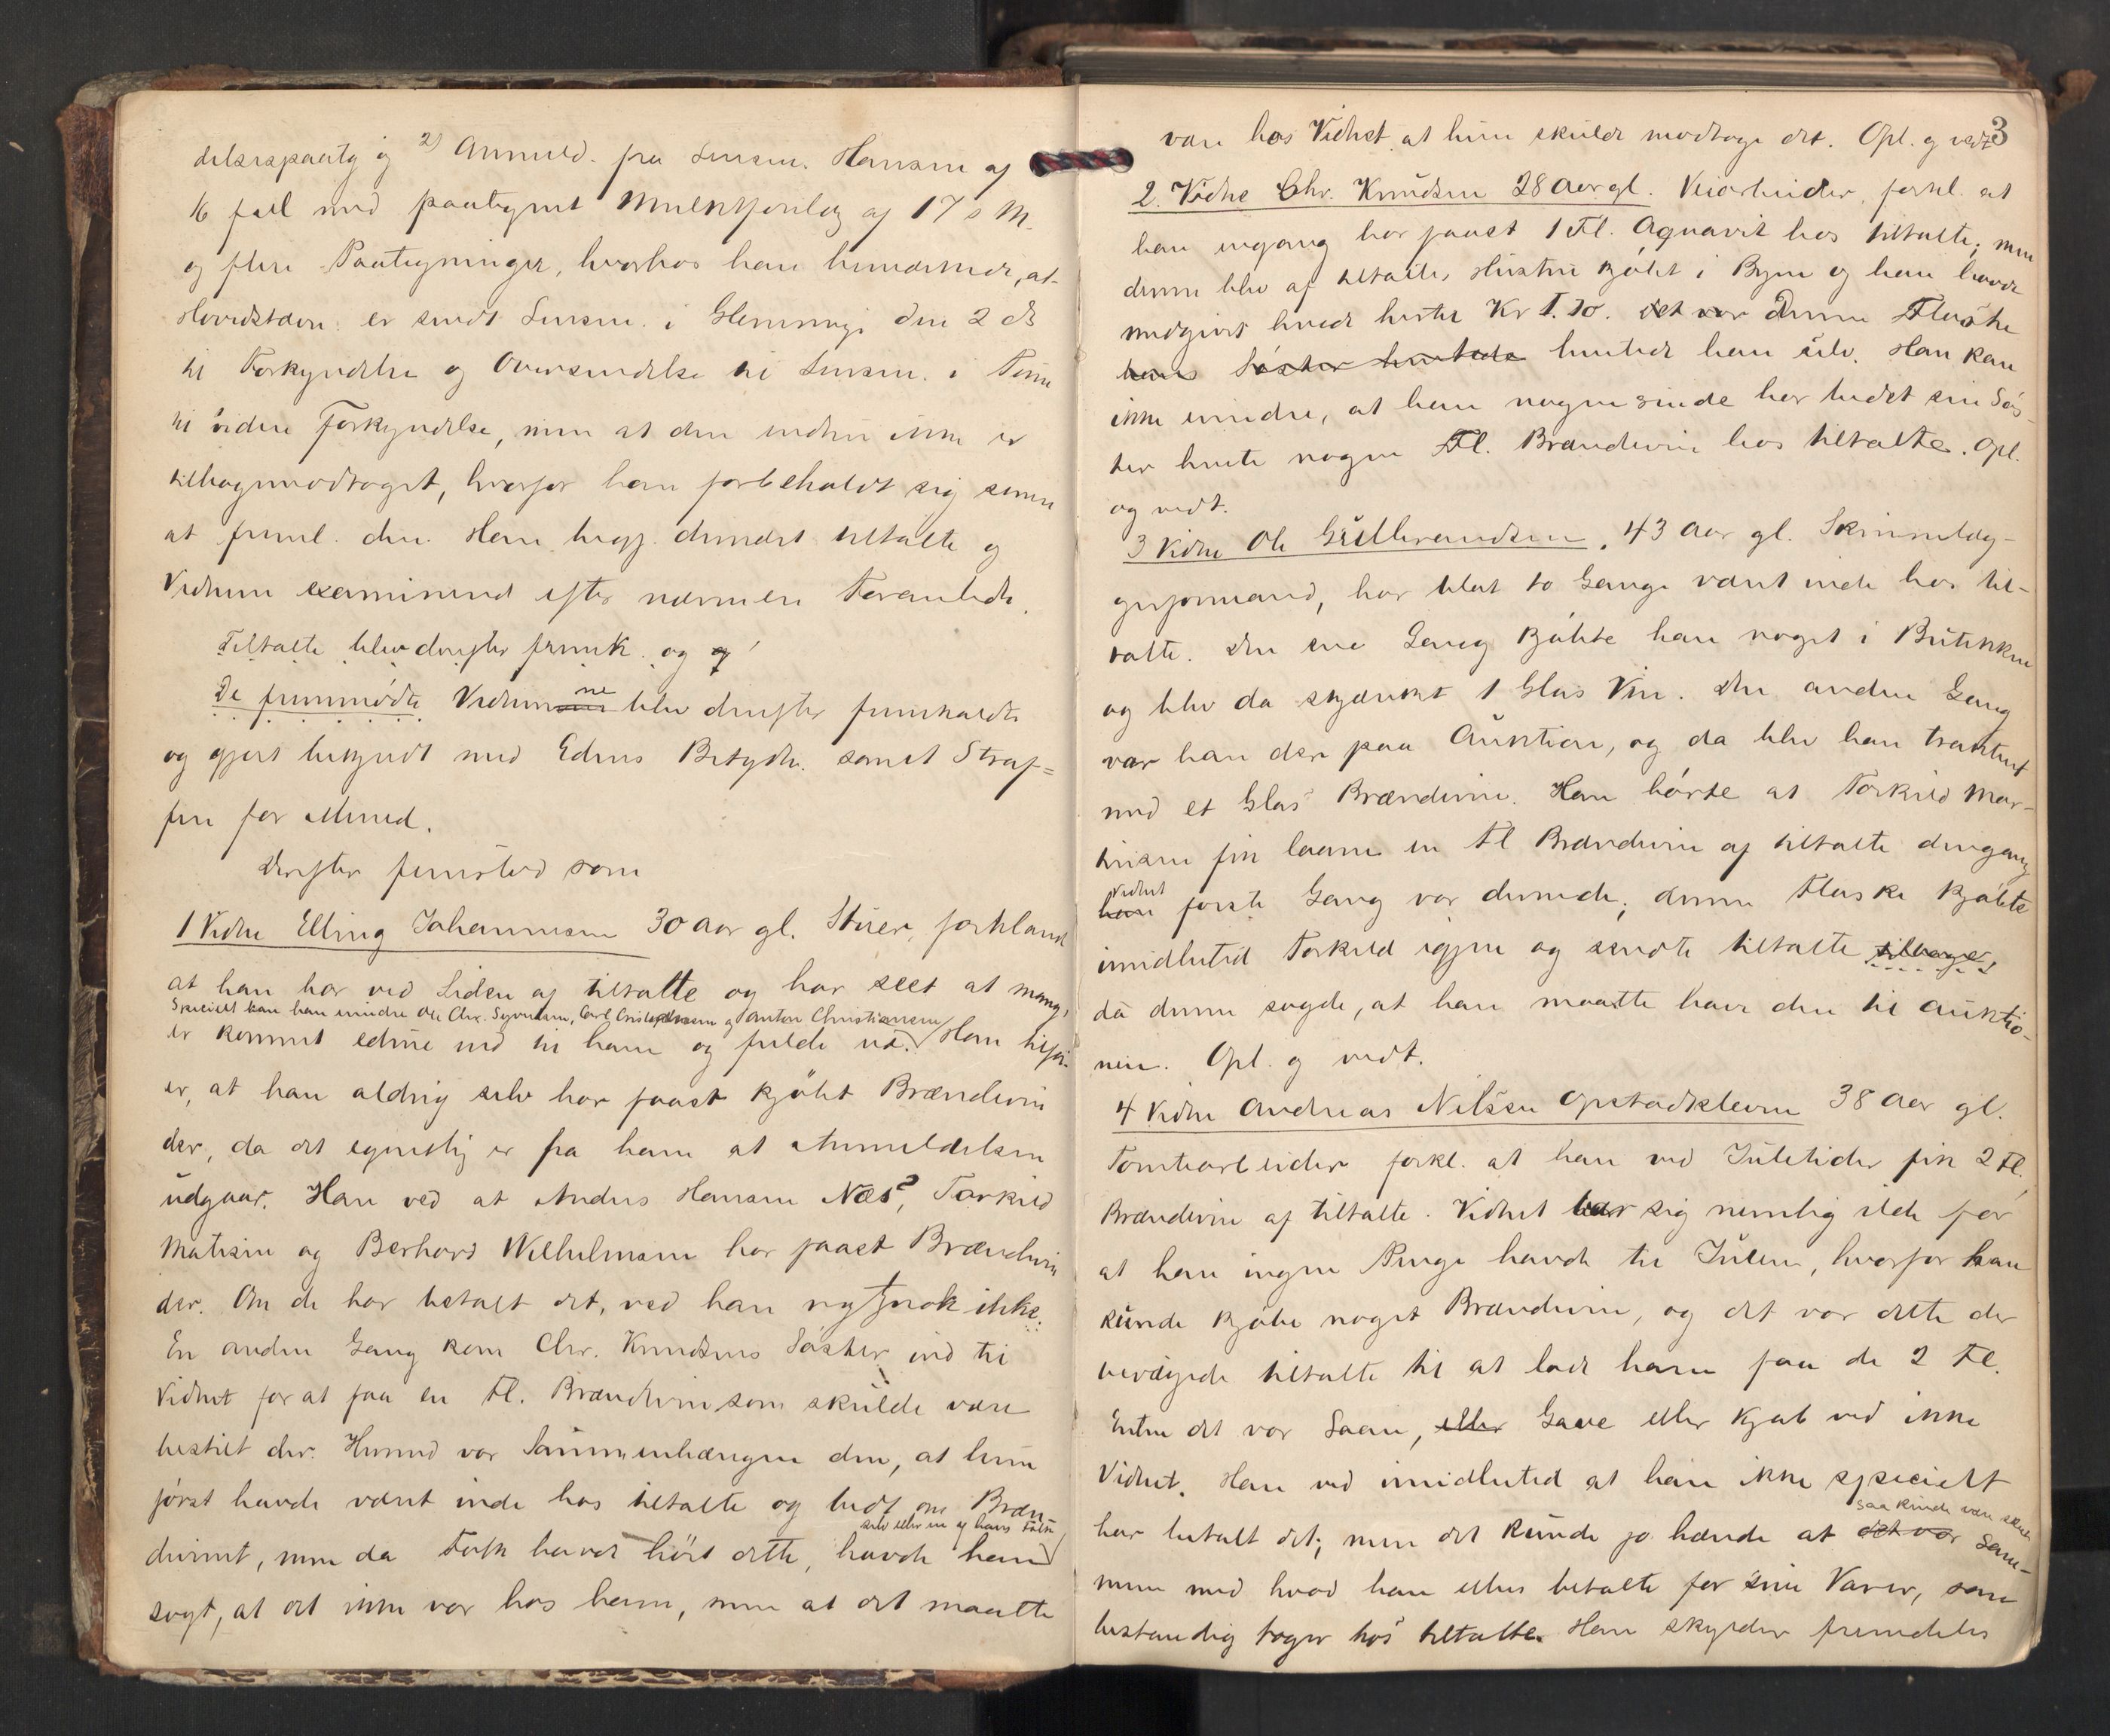 delsespaateg og 2) Anmeld. fra Lensm. Hansen af
16 fall med paategnet Mulktforelæg af 17 s M.
og flere Paategninger, hvorhos han bemærkede, at
Hovedstævn. er sendt Lensm. i Glemminge den 2 ds
til Forkyndelse og Oversendelse til Lensm. i Tune
til videre Forkyndelse, men at den endnu ikke er
tilbagemodtaget, hvorfor han forbeholdt sig senere
at freml. den. Han begj. dernæst tiltalte og
Vidnerne examineret efter nærmere Foranledn.
Tiltalte blev derefter fremk. og
De fremmødte Vidnerne blev derefter fremkaldte
og gjort bekjendt med Edens Betydn. samt Straf=
fen for Mened.
Derefter fremstod som
1 Vidne Elling Johannesen 30 Aar gl. Stuer, forklarede
at han bor ved Siden af tiltalte og har seet at mange,
Specielt kan han erindre Ole Chr. Syversen, Carl Cristophersen og Anton Christiansen
er kommet edrue ind til ham og fulde ud. Han tilføi-
er, at han aldrig selv har faaet kjøbt Brændevin
der, da det egentlig er fra ham at Anmeldelsen
udgaar. Han ved at Anders Hansen Næs?, Torkild
Matisen og Berhard Wilhelmsen har faaet Brændevin
der. Om de har betalt det, ved han nok ikke.
En anden Gang kom Chr. Knudsens Søster ind til
Vidnet for at faa en Fl. Brændevin som skulde være
bestilt der. Hermed var Sammenhængen den, at hun
først havde været inde hos tiltalte og bedt om Bræn-
selv eller en af hans Folk
devinet, men da Folk havde hørt dette, havde han
sagt, at det ikke var hos ham, men at det maatte
3
være hos Vidnet at hun skulde modtage det. Opl. og vedt.
2. Vidne Chr. Knudsen 28 Aar gl. Veiarbeider, forkl. at
han engang har faaet 1 Fl. Aqvavit hos tiltalte; men
denne blev af tiltaltes Hustru kjøbt i Byen og han havde
medgivet hende hertil Kr 1.10. Det var Denne Flaske
hans Søster hentede hentede han selv. Han kan
ikke erindre, at han nogensinde har bedt sin Søs-
ter hente nogen Fl. Brændevin hos tiltalte. Opl.
og vedt.
3 Vidne Ole Gulbrandsen, 43 Aar gl. Skinnelæg-
gerformand, har blot to Gange været inde hos til-
talte. Den ene Gang kjøbte han noget i Butikken
og blev da skjænket 1 Glas Vin. Den anden Gang
var han der paa Auktion, og da blev han trakteret
med et Glas Brændevin. Han hørte at Torkild Mar-
tinsen fik laane en Fl Brændevin af tiltalte dengang
Vidnet
han første Gang var dernede; denne Flaske kjøbte
imidlertid Torkild igjen og sendte tiltalte tilbage,
da denne sagde, at han maatte have den til Auktio-
nen. Opl. og vedt.
4 Vidne Andreas Nilsen Opstadkleven 38 Aar gl.
Tomtearbeider forkl. at han ved Juletider fik 2 Fl.
Brændevin af tiltalte. Vidnet bar sig nemlig ilde for
at han ingen Penge havde til Julen, hvorfor han
kunde kjøbe noget Brændevin, og det var dette der
bevægede tiltalte til at lade ham faa de 2 Fl.
Enten det var Laan, eller Gave eller Kjøb ved ikke
Vidnet. Han ved imidlertid at han ikke specielt
saa kunde være skeet
har betalt det; men det kunde jo hænde at det var Sam-
men med hvad han ellers betalte for sine Varer, som
bestandig tages hos tiltalte. Han skylder fremdeles